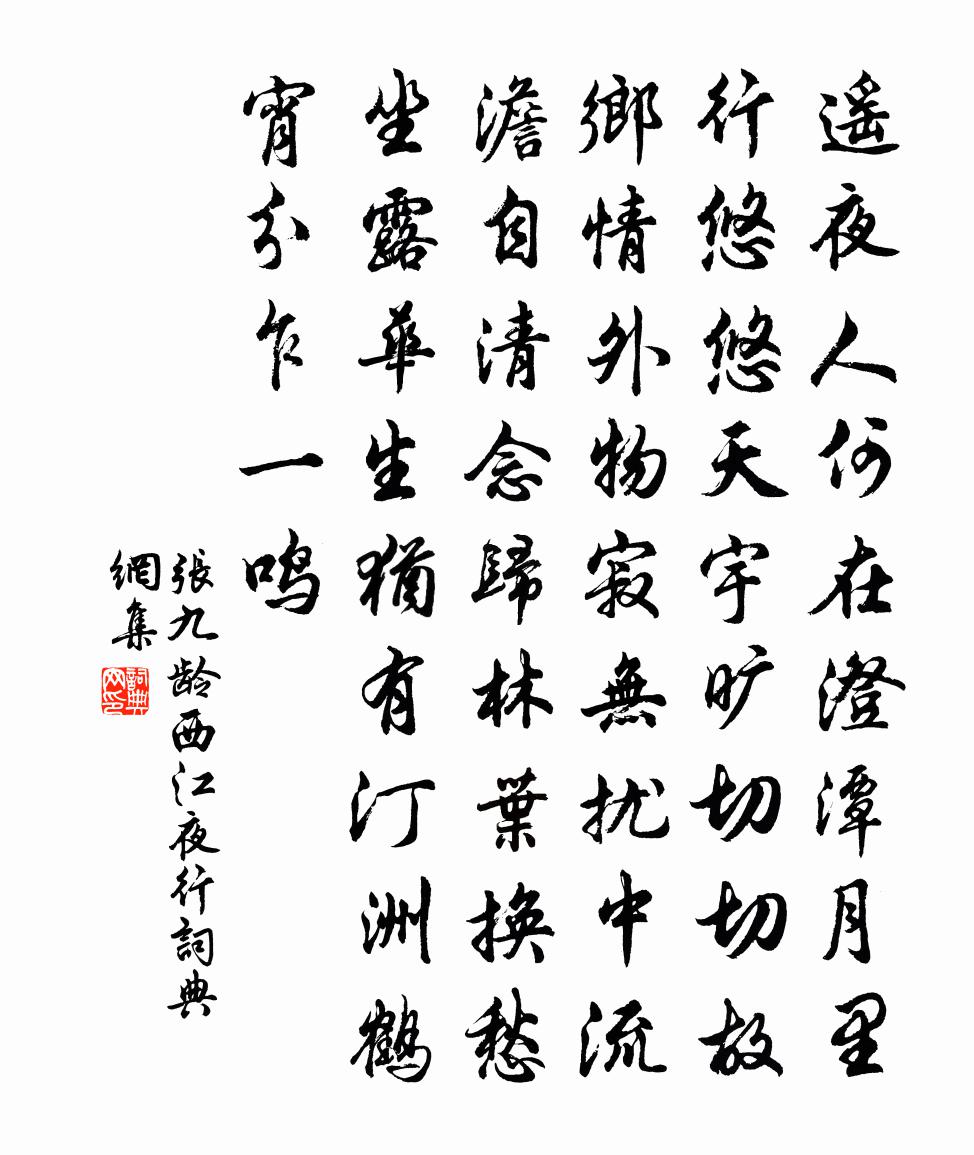 遥夜人何在澄潭月里
行悠悠天宇旷切切故
鄉情外物寂無扰中流
澹自清念歸林葉換愁
坐露華生猶有汀洲鶴
宵分乍一鸣
張九龄西江夜行詞典
網集
詞典网印